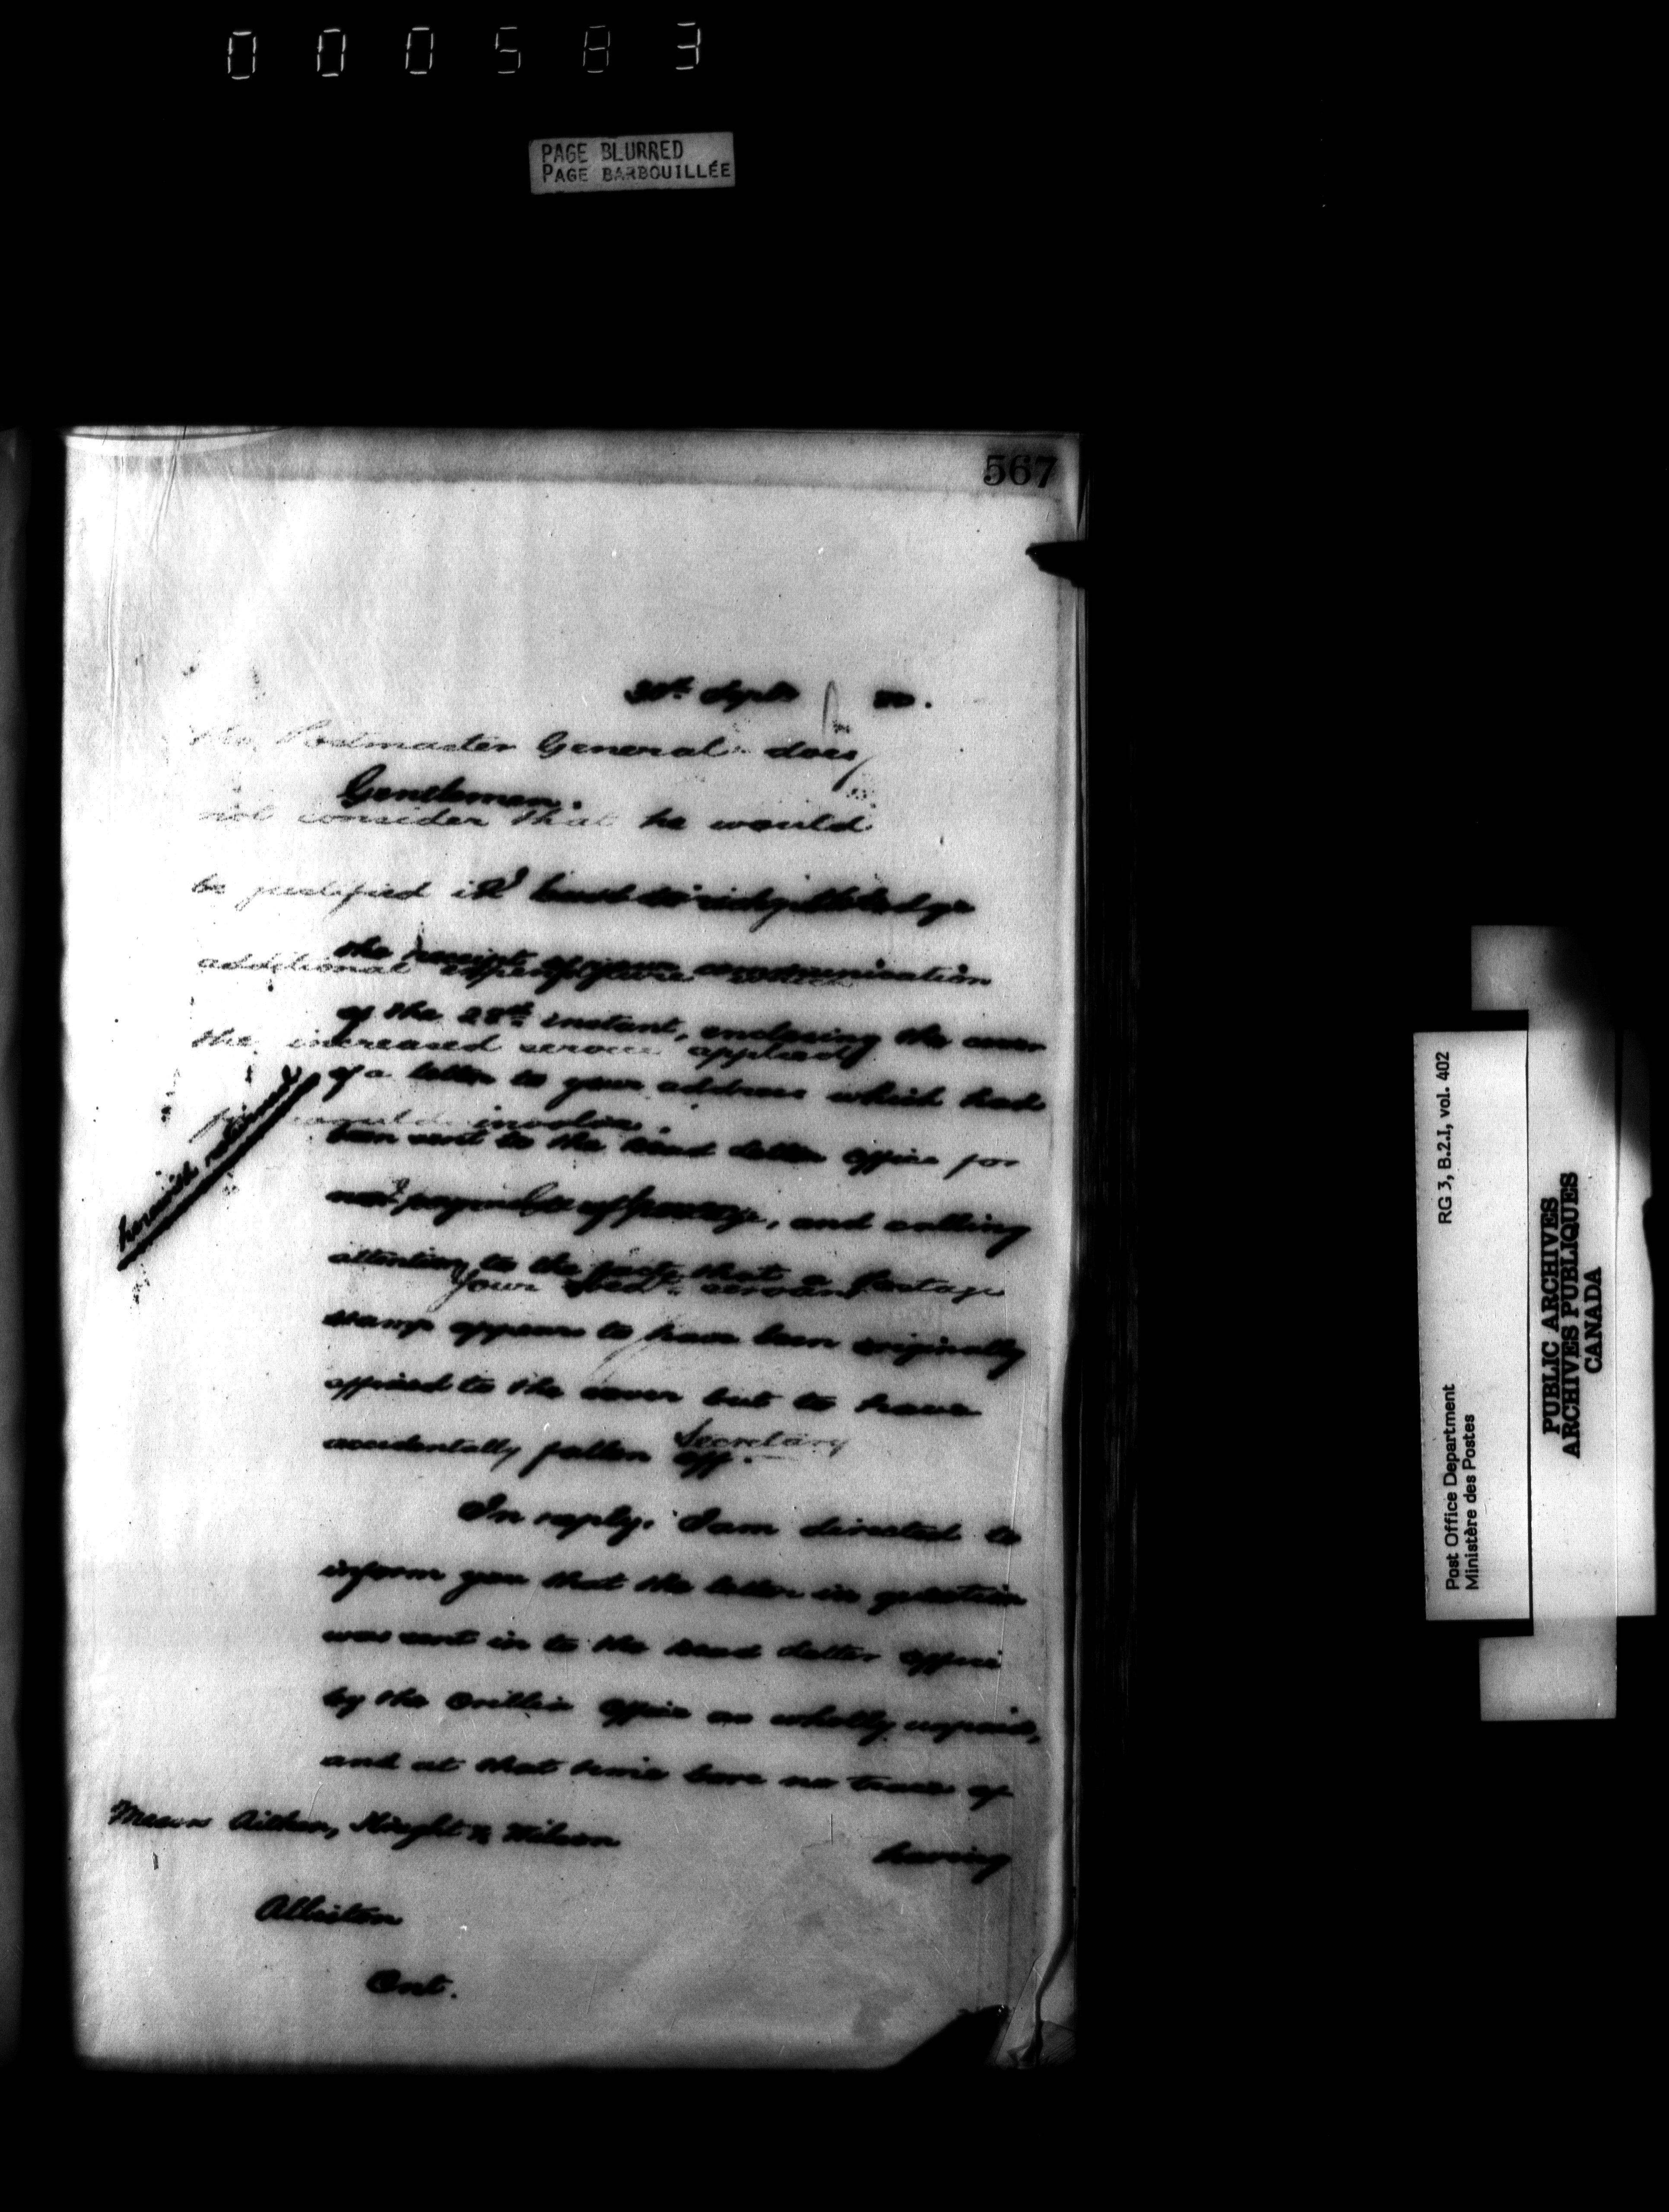 000583
PAGE BLURRED
PAGE BARBOUILLÉE
567
30th Sept 80.
The Postmaster General does
Gentlemen.
not consider that he would
be justified in
I have to acknowledge
the receipt of your communication
additional expenditure which
of the 28th instant, enclosing the cover
the increased service applied
of a letter to your address which had
for would involve.
been sent to the Dead Letter Office for
herewith returned
non payment of postage, and calling
attention to the fact that a Postage
Your Obed. servant
stamp appears to have been originally
affixed to the cover but to have
accidentally fallen off.
Secretary
In reply, I am directed to
inform you that the letter in question
was sent in to the Dead Letter Office
by the Orillia Office as wholly unpaid,
and at that time bore no trace of
having
Messrs Aitken, Haight & Wilson
Alliston
Ont.
RG 3, B.2.I, vol. 402
Post Office Department
Ministère des Postes
PUBLIC ARCHIVES
ARCHIVES PUBLIQUES
CANADA